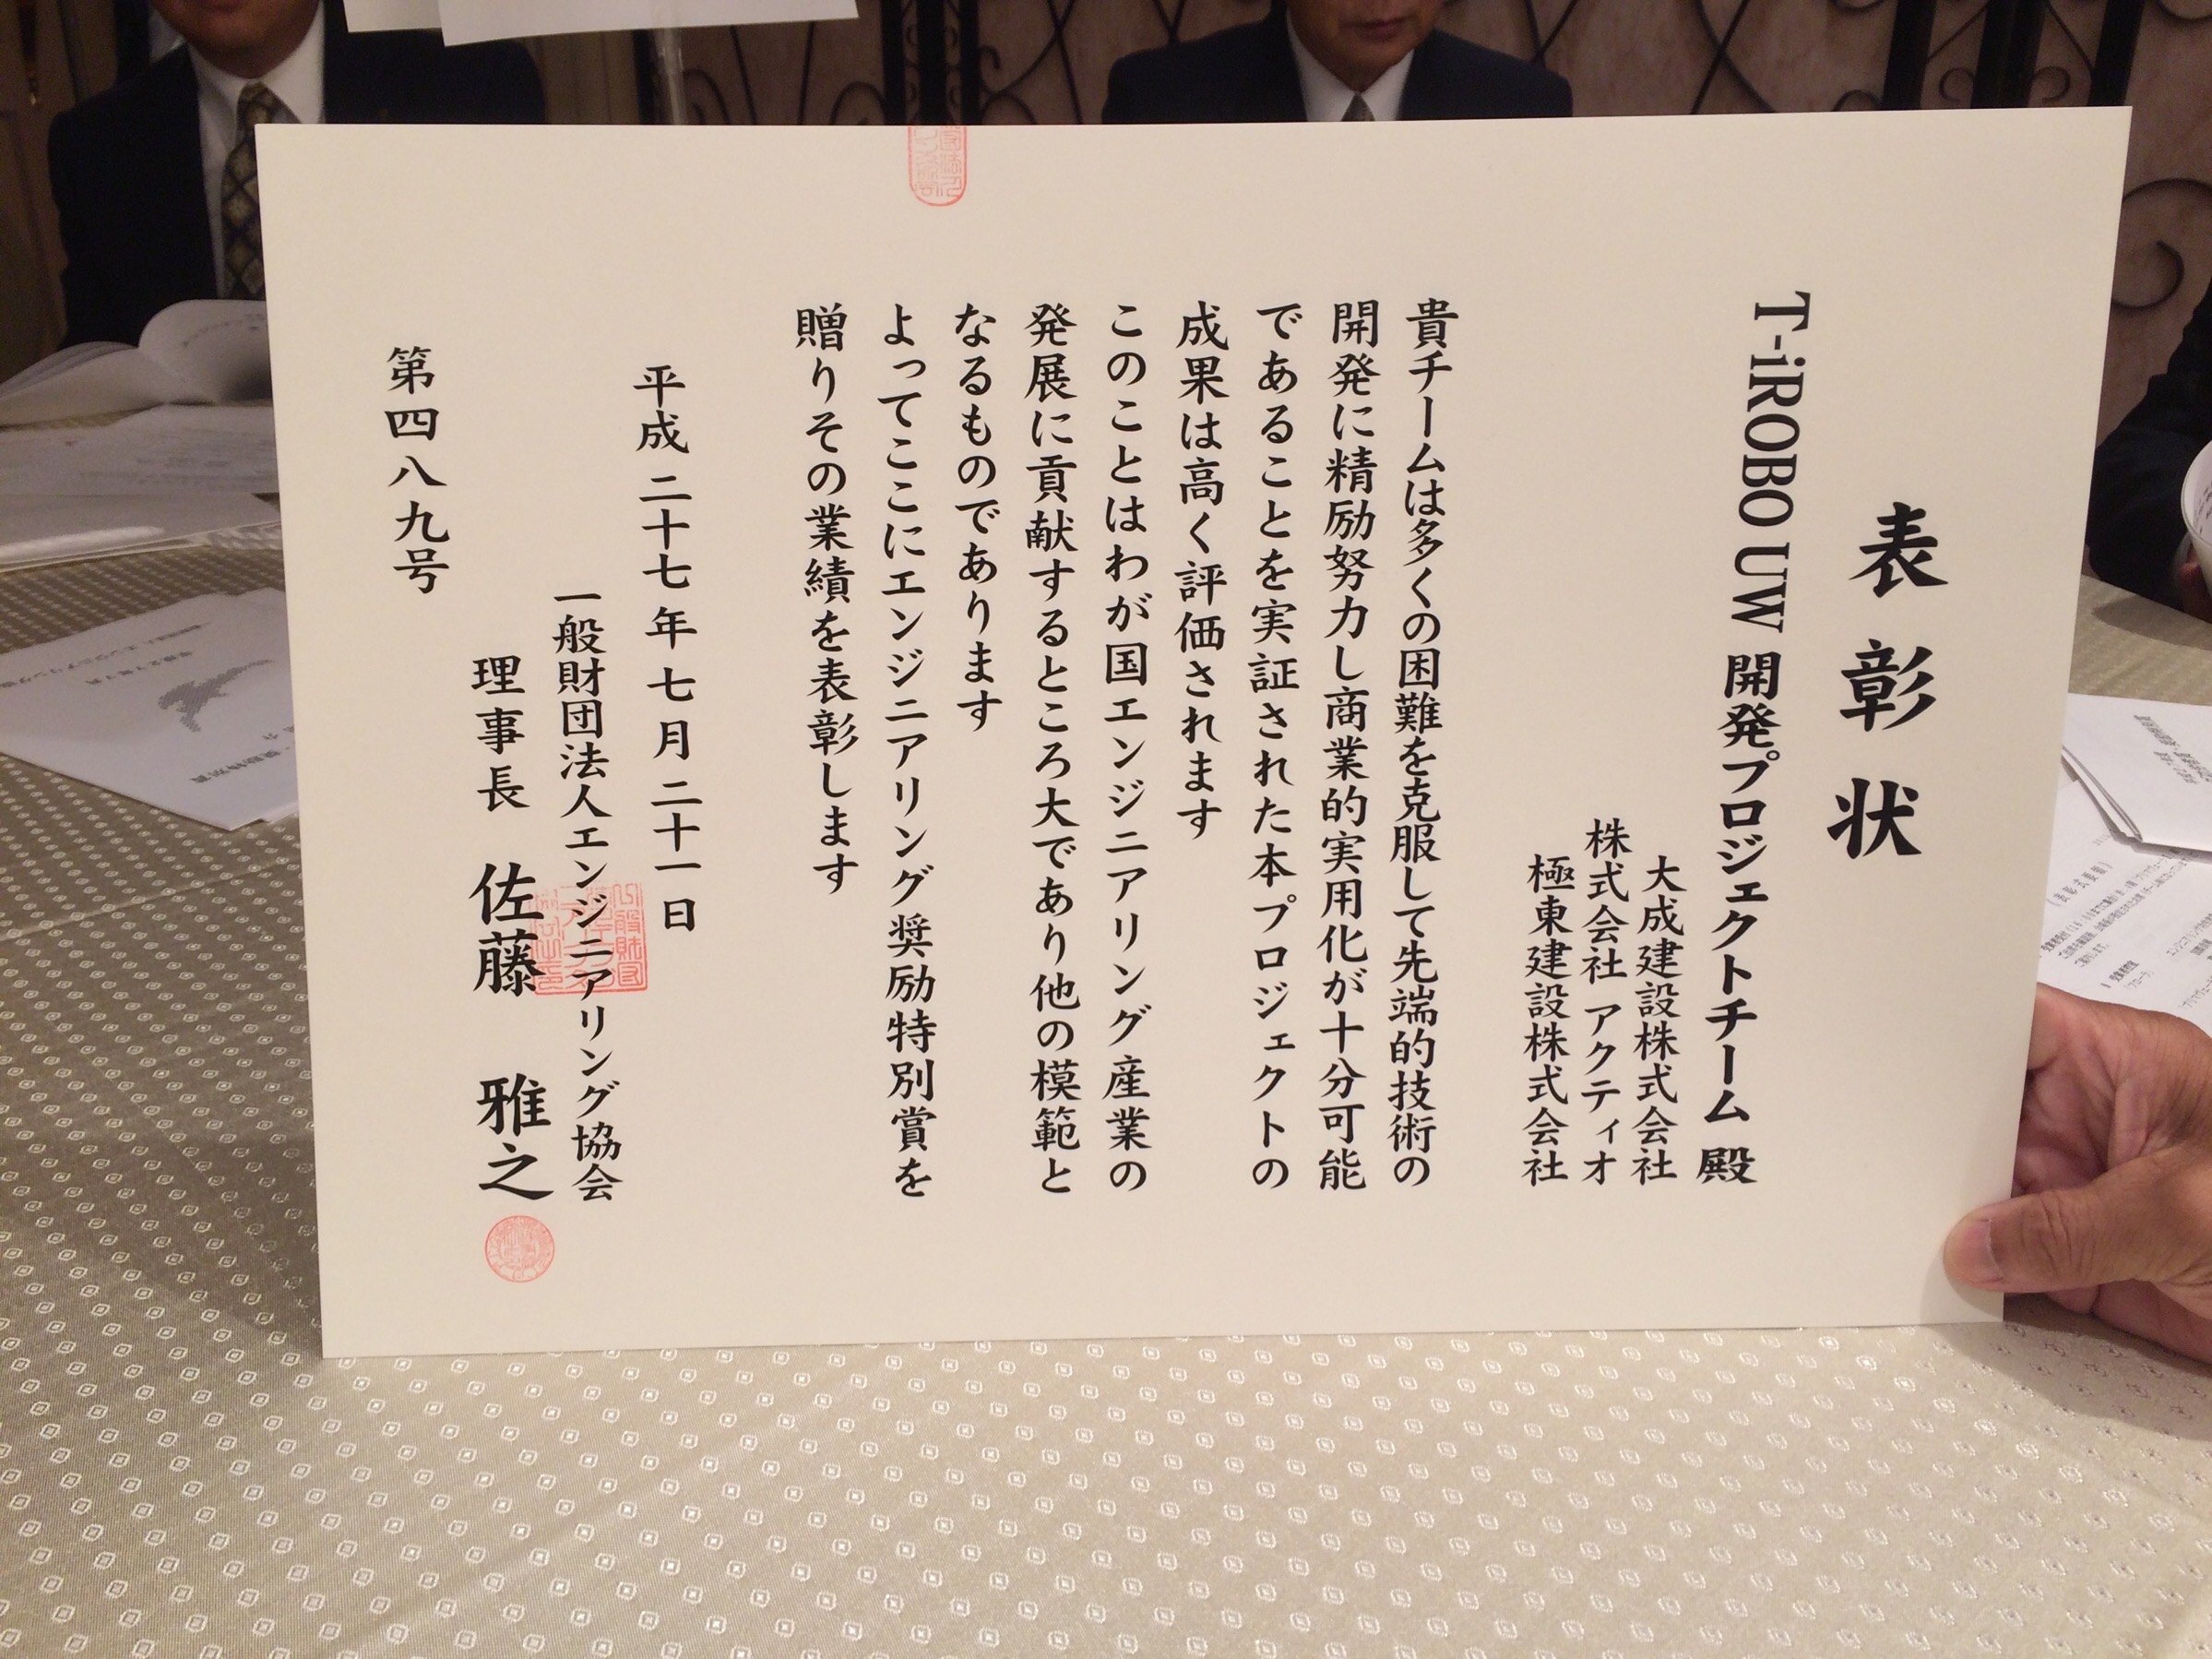 表彰状
T-iROBO UW 開発プロジェクトチーム 殿
大成建設株式会社
株式会社 アクティオ
極東建設株式会社
貴チームは多くの困難を克服して先端的技術の
開発に精励努力し商業的実用化が十分可能
であることを実証された本プロジェクトの
成果は高く評価されます
このことはわが国エンジニアリング産業の
発展に貢献するところ大であり他の模範と
なるものであります
よってここにエンジニアリング奨励特別賞を
贈りその業績を表彰します
平成 二十七年 七月 二十一日
一般財団法人エンジニアリング協会
理事長 佐藤 雅之
第四八九号